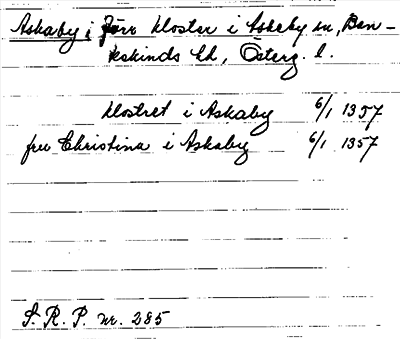 Askaby i förr kloster i Askeby sn, Ban-
kekinds hd, Österg. l.
klostret i Askaby 6/1 1357
fru Christina i Askaby 6/1 1357
S. R. P. nr. 285